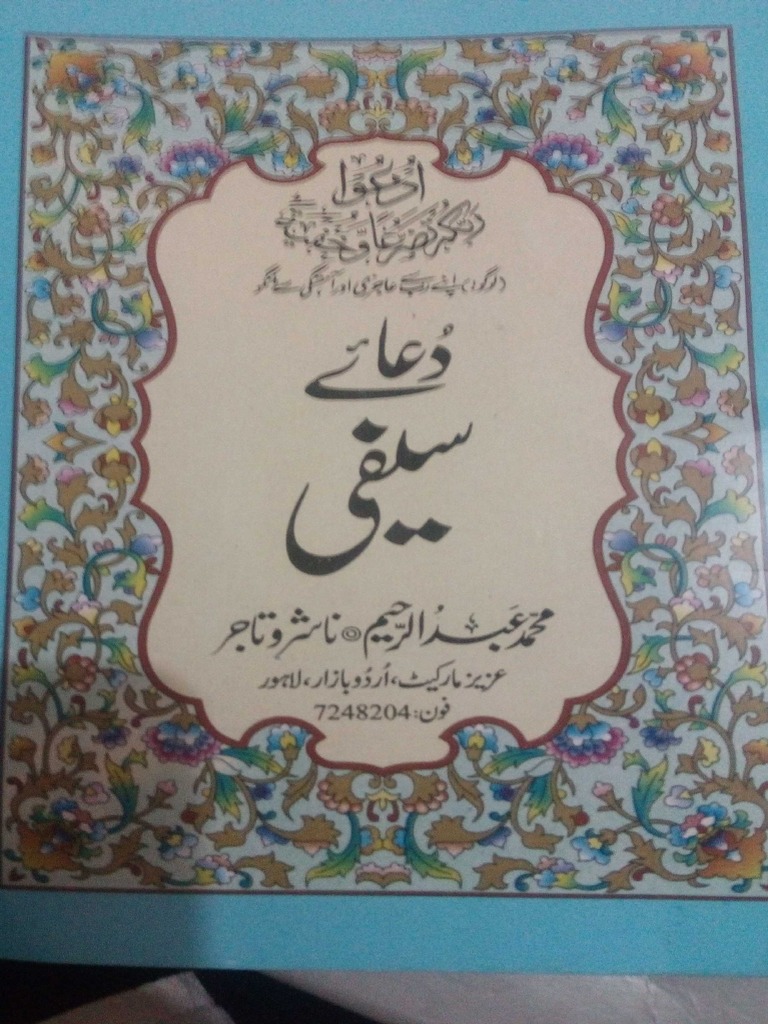 اُدْعُوْا
رَبَّكُمْ تَضَرُّعًا وَّخُفْيَةً
(لوگو!) اپنے رب سے عاجزی اور آہستگی سے مانگو
دُعائے
سیفی
محمّد عَبدُ الرَّحیم ◎ ناشر و تاجر
عزیز مارکیٹ، اُردُو بازار، لاہور
فون: 7248204